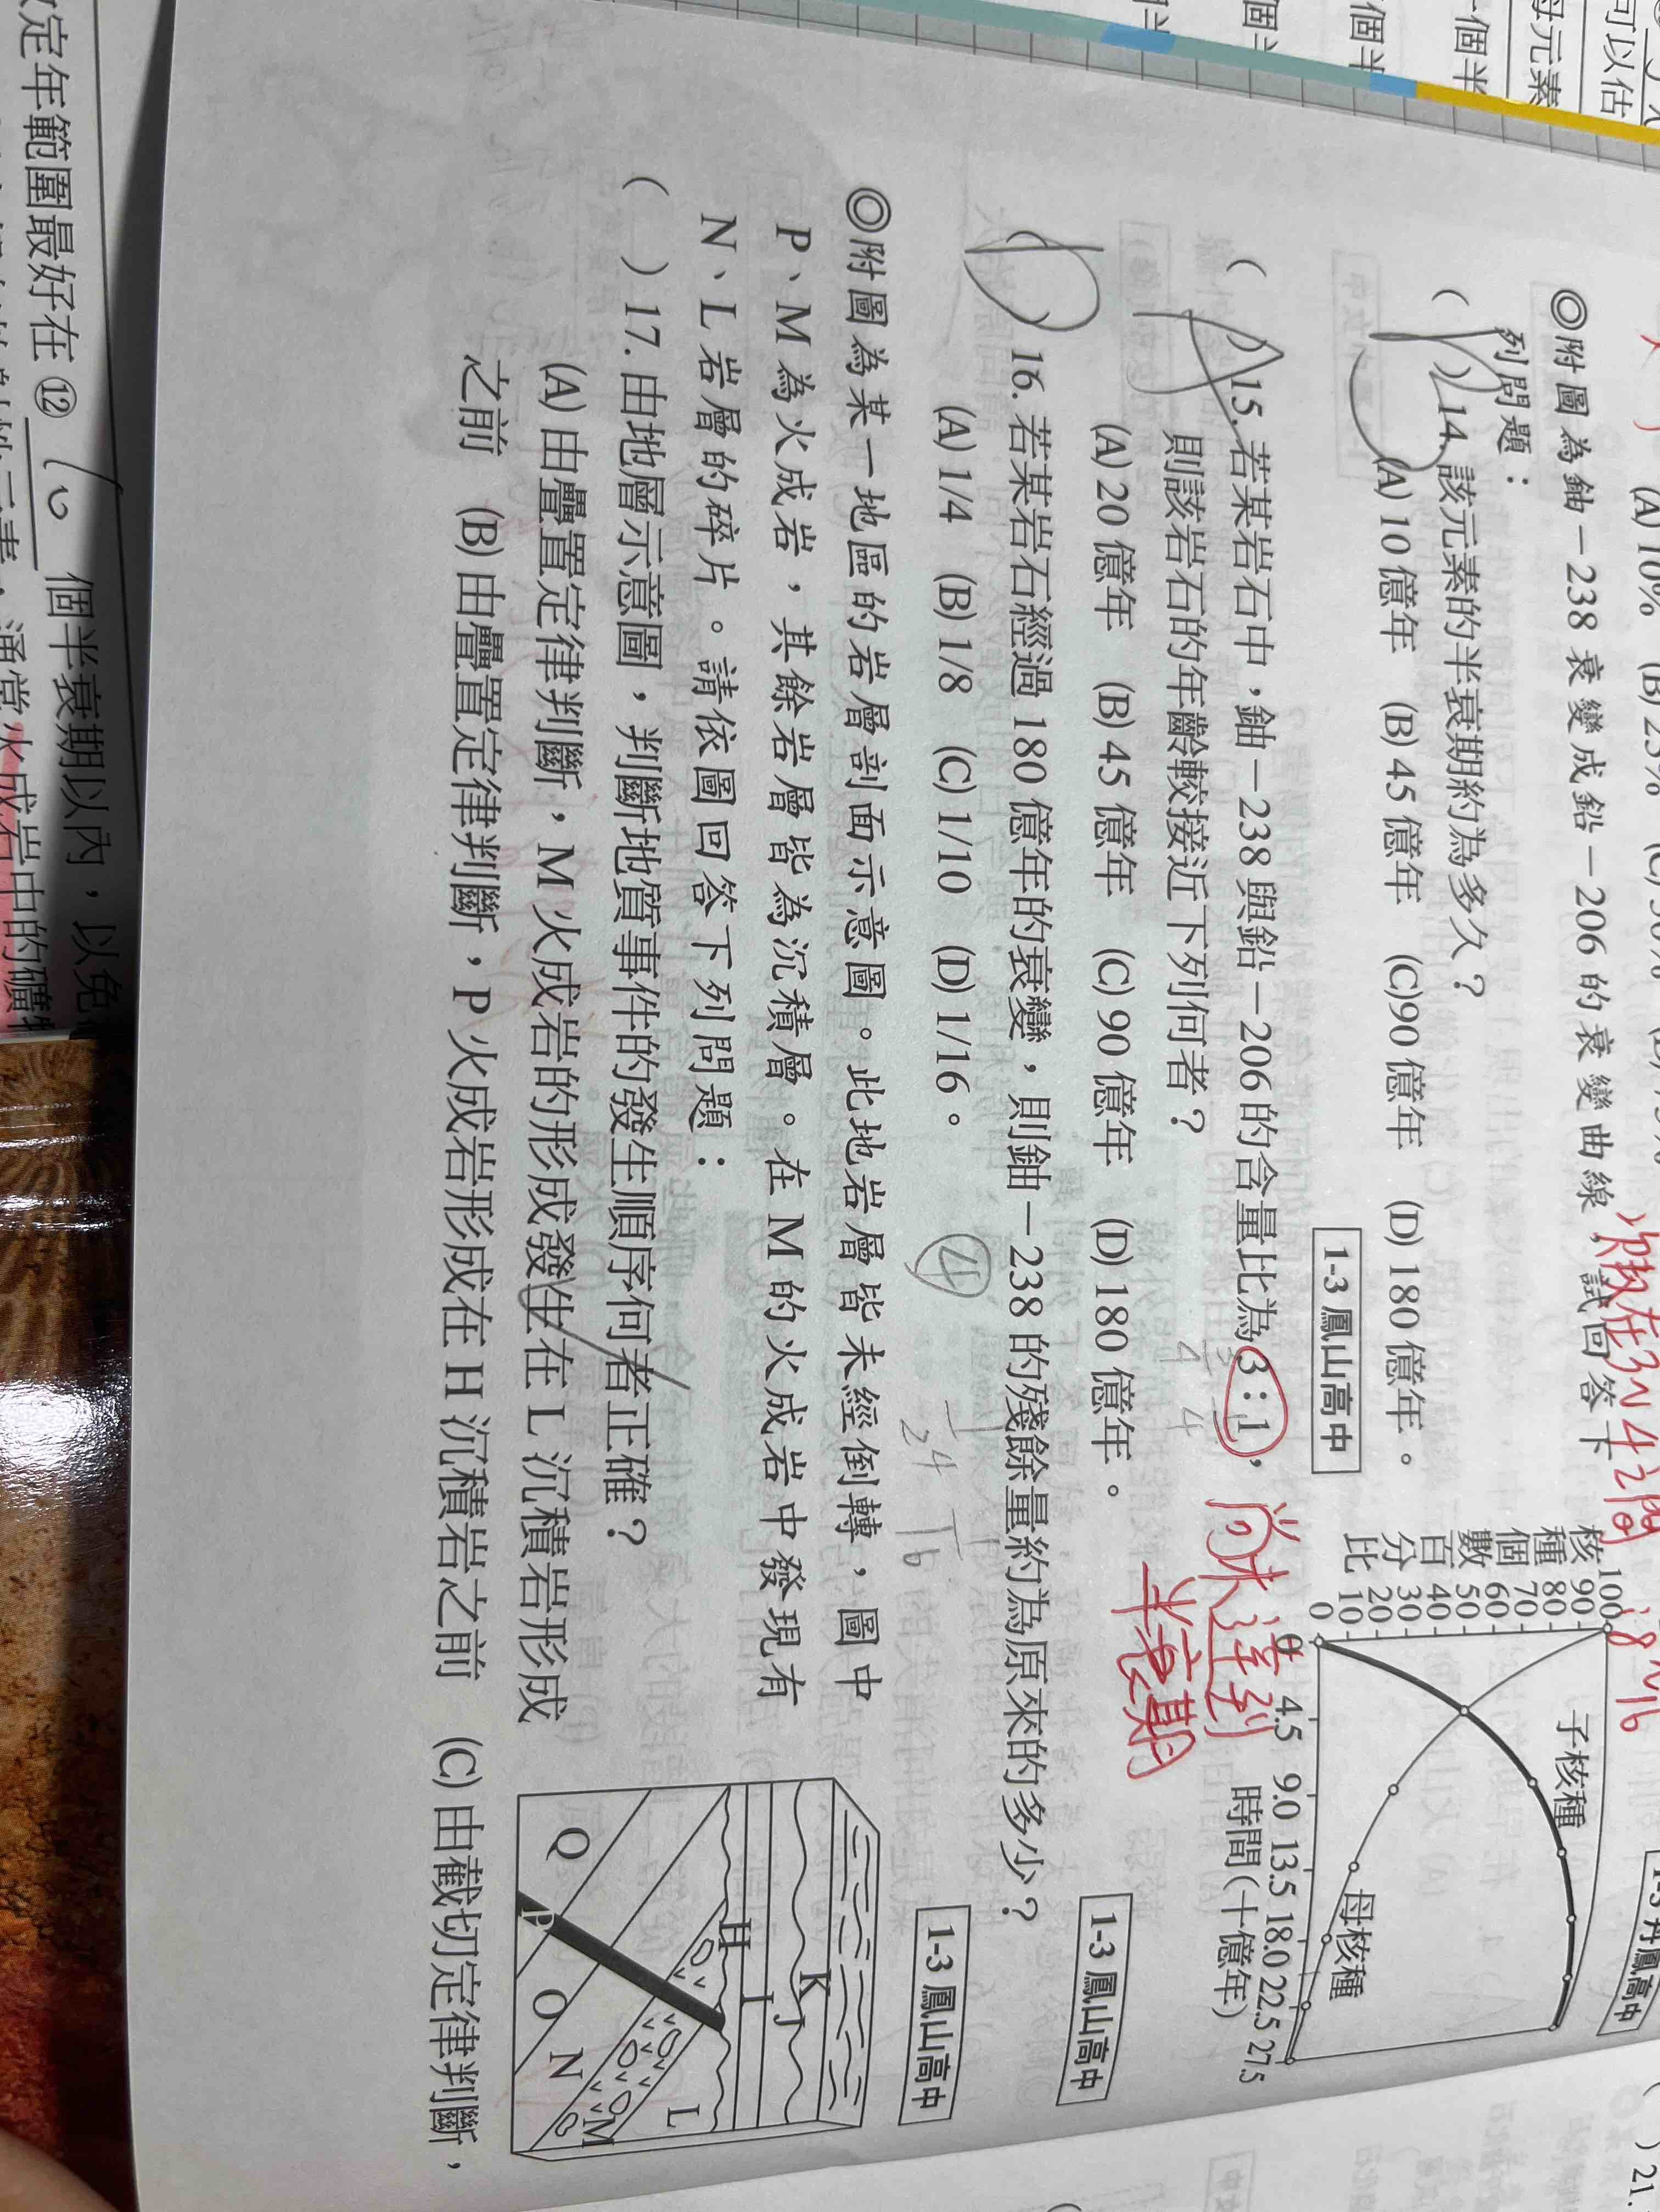 可以估
母元素
個半
個半
(A) 10% (B) 25%
1-3 丹鳳高中
般在3~4之間
◎附圖為鈾－238 衰變成鉛－206 的衰變曲線，試回答下
列問題：
( ) 14. 該元素的半衰期約為多久？
(A) 10 億年 (B) 45 億年 (C)90 億年 (D) 180 億年。
1-3 鳳山高中
核種個數百分比
100
90
80
70
60
50
40
30
20
10
0
0 4.5 9.0 13.5 18.0 22.5 27.5
時間(十億年)
子核種
母核種
( ) 15. 若某岩石中，鈾－238 與鉛－206 的含量比為 3：1，
則該岩石的年齡較接近下列何者？
(A) 20 億年 (B) 45 億年 (C) 90 億年 (D) 180 億年。
1-3 鳳山高中
尚未達到
半衰期
16. 若某岩石經過 180 億年的衰變，則鈾－238 的殘餘量約為原來的多少？
(A) 1/4 (B) 1/8 (C) 1/10 (D) 1/16。
④
1-3 鳳山高中
◎附圖為某一地區的岩層剖面示意圖。此地岩層皆未經倒轉，圖中
P、M 為火成岩，其餘岩層皆為沉積層。在 M 的火成岩中發現有
N、L 岩層的碎片。請依圖回答下列問題：
( ) 17. 由地層示意圖，判斷地質事件的發生順序何者正確？
(A) 由疊置定律判斷，M 火成岩的形成發生在 L 沉積岩形成
之前 (B) 由疊置定律判斷，P 火成岩形成在 H 沉積岩之前 (C) 由截切定律判斷，
K
J
I
H
L
M
N
O
P
Q
定年範圍最好在 ⑫ 10 個半衰期以內，以免
火成岩中的礦